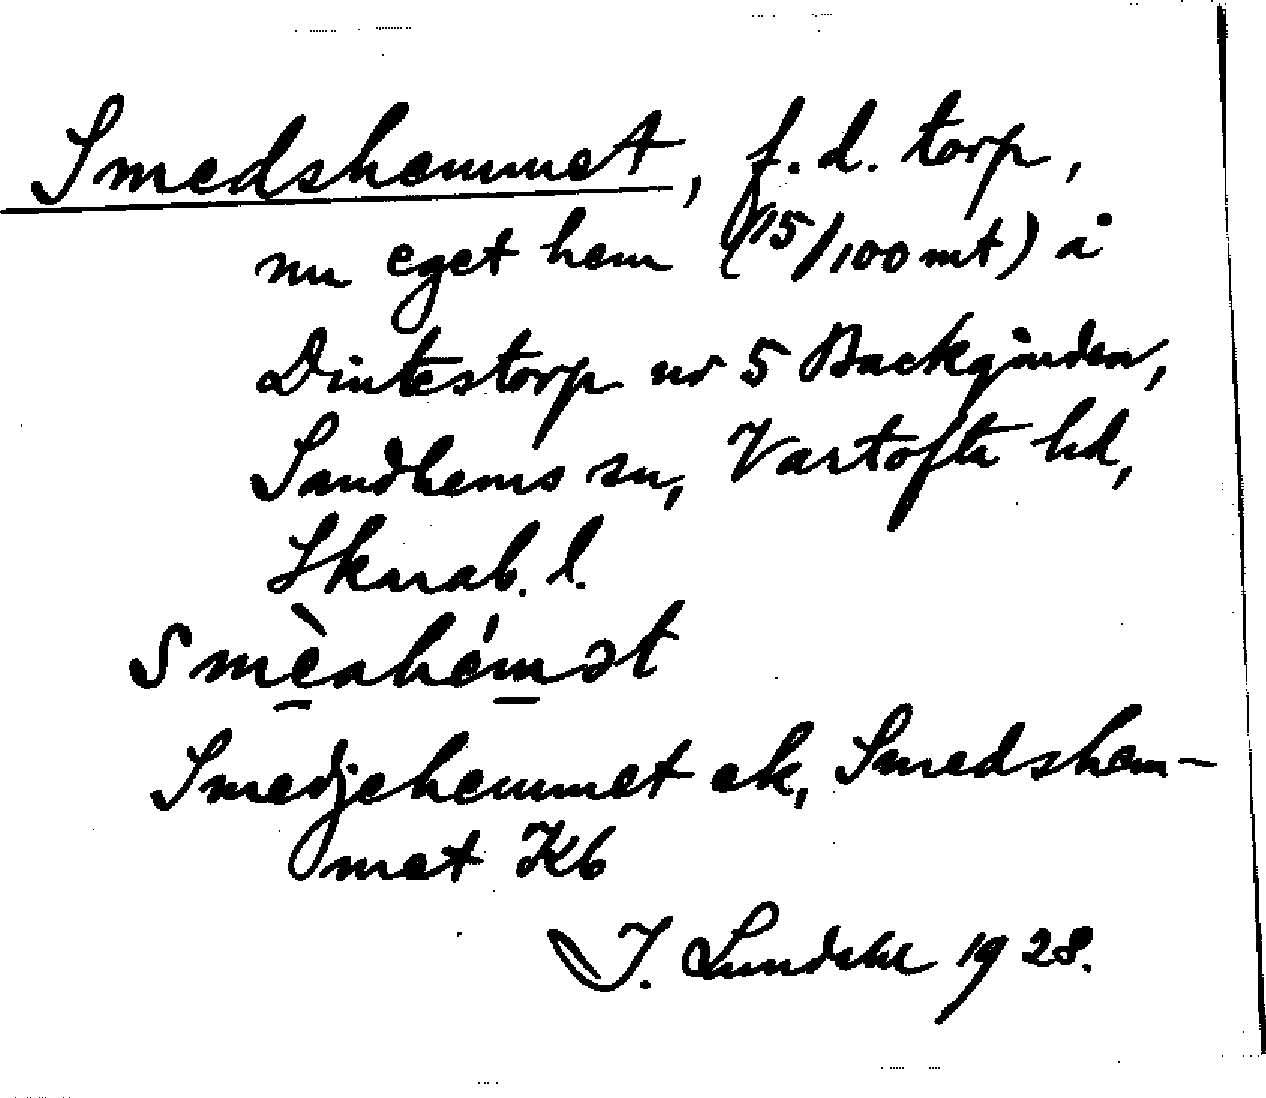 Smedshemmet, f.d. torp,
nu eget hem (15/100 mt) å
Dintestorp nr 5 Backgården,
Sandhems sn, Vartofta hd,
Skarab. l.
Smèahémət
Smedjehemmet ek, Smedshem-
met Kb
I. Lundahl 1928.